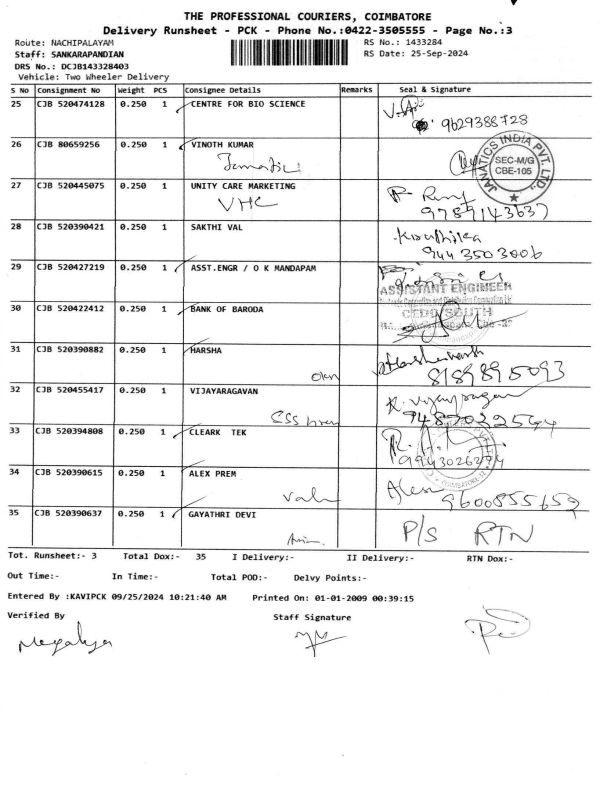 THE PROFESSIONAL COURIERS, COIMBATORE
Delivery Runsheet - PCK - Phone No.:0422-3505555 - Page No.:3
Route: NACHIPALAYAM RS No.: 1433284
Staff: SANKARAPANDIAN RS Date: 25-Sep-2024
DRS No.: DCJB143328403
Vehicle: Two Wheeler Delivery
S No Consignment No Weight PCS Consignee Details Remarks Seal & Signature
25 CJB 520474128 0.250 1 CENTRE FOR BIO SCIENCE
9629388728
26 CJB 80659256 0.250 1 VINOTH KUMAR
JANATICS INDIA PVT. LTD.,
SEC-M/G
CBE-105
27 CJB 520445075 0.250 1 UNITY CARE MARKETING
VHC
9789143637
28 CJB 520390421 0.250 1 SAKTHI VAL
Kowthika
9443503006
29 CJB 520427219 0.250 1 ASST.ENGR / O K MANDAPAM
ASSISTANT ENGINEER
30 CJB 520422412 0.250 1 BANK OF BARODA
SOUTH
31 CJB 520390882 0.250 1 HARSHA
8189895093
32 CJB 520455417 0.250 1 VIJAYARAGAVAN
R. Vijayaragavan
33 CJB 520394808 0.250 1 CLEARK TEK
9943026274
34 CJB 520390615 0.250 1 ALEX PREM
Alex
9600855652
35 CJB 520390637 0.250 1 GAYATHRI DEVI
P/S RTN
Tot. Runsheet:- 3 Total Dox:- 35 I Delivery:- II Delivery:- RTN Dox:-
Out Time:- In Time:- Total POD:- Delvy Points:-
Entered By :KAVIPCK 09/25/2024 10:21:40 AM Printed On: 01-01-2009 00:39:15
Verified By Staff Signature